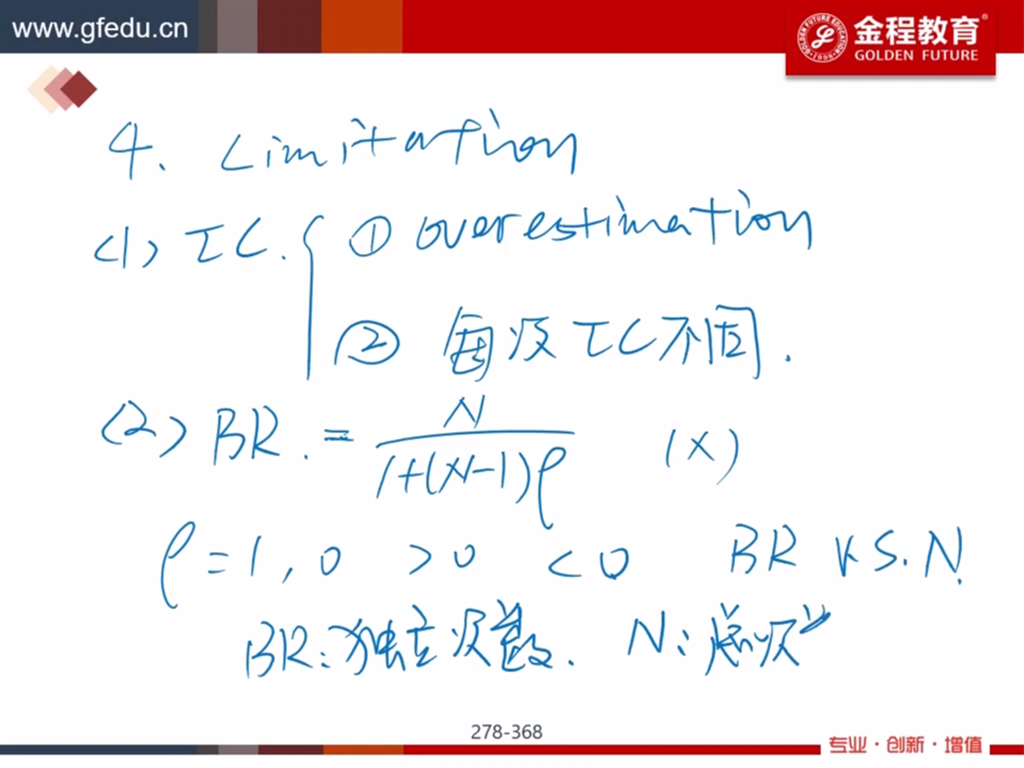 www.gfedu.cn
金程教育®
GOLDEN FUTURE
4. Limitation
(1) IC. { ① overestimation
② 每次 IC 不同.
(2) BR. = N / 1+(N-1)ρ (×)
ρ=1, 0 >0 <0 BR vs. N.
BR: 独立次数. N: 总次
278-368
专业·创新·增值